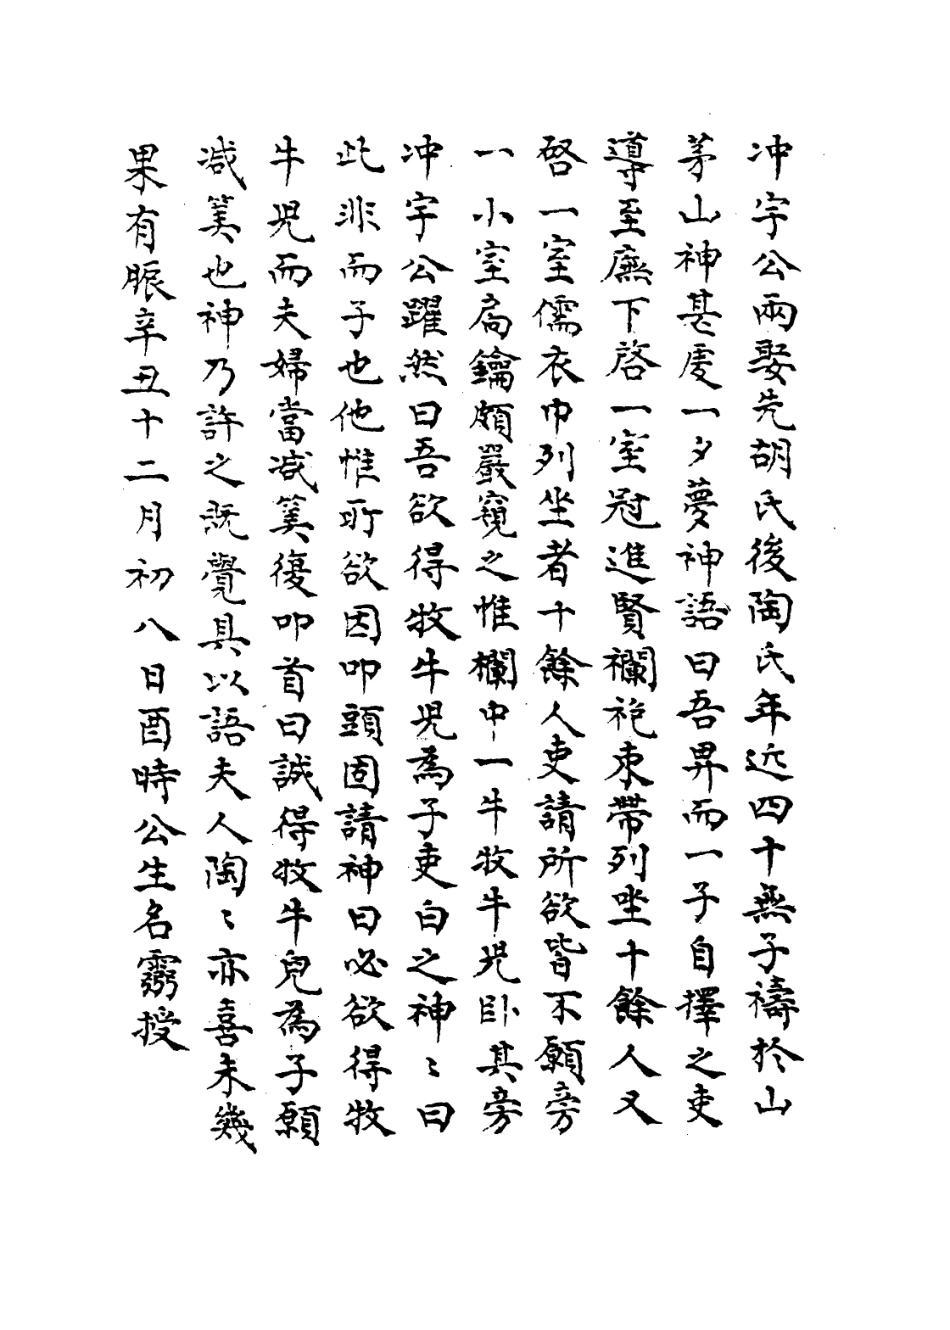 冲宇公兩娶先胡氏後陶氏年近四十無子禱於山
茅山神甚虔一夕夢神語曰吾畀而一子自擇之吏
導至廡下啓一室冠進賢襴袍束帶列坐十餘人又
啓一室儒衣巾列坐者十餘人吏請所欲皆不願旁
一小室扃鑰頗嚴窺之惟欄中一牛牧牛児卧其旁
冲宇公躍然曰吾欲得牧牛児為子吏白之神〻曰
此非而子也他惟所欲因叩頭固請神曰必欲得牧
牛児而夫婦當减筭復叩首曰誠得牧牛兒為子願
减筭也神乃許之既覺具以語夫人陶〻亦喜未幾
果有脤辛丑十二月初八日酉時公生名霧授